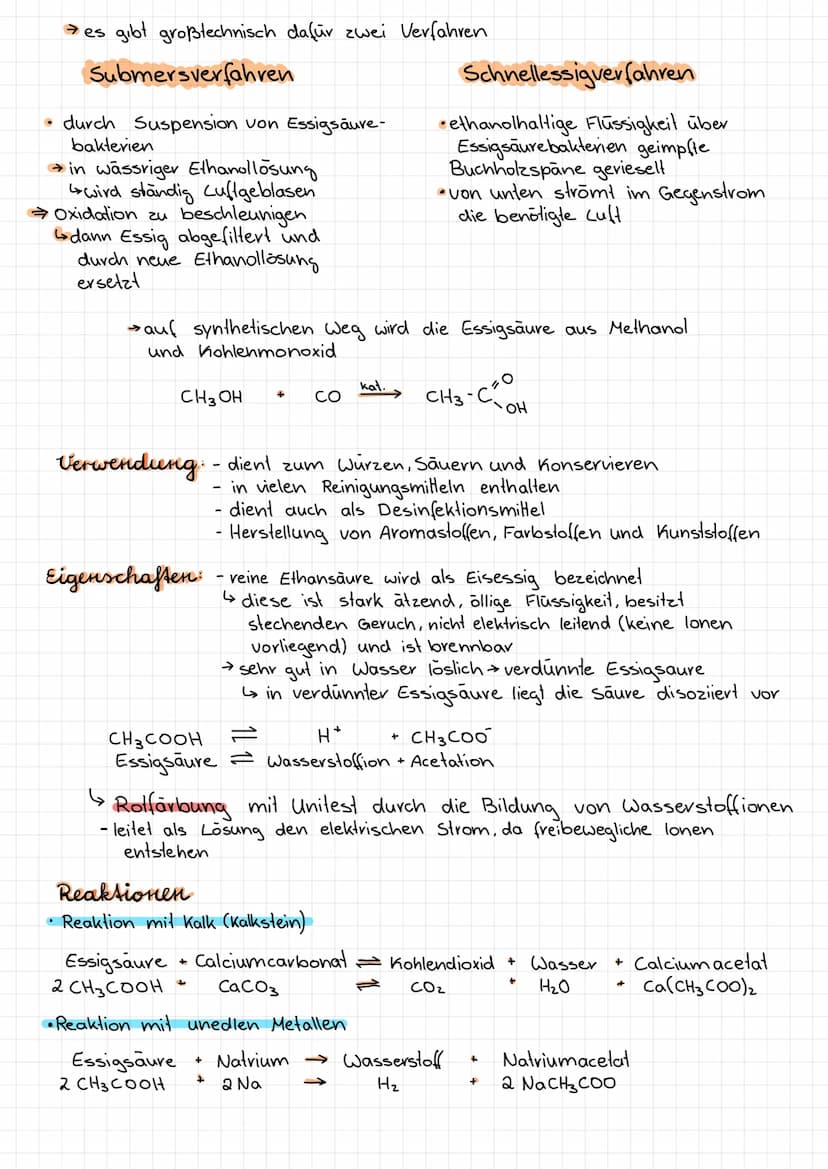 → es gibt großtechnisch dafür zwei Verfahren
Submersverfahren
• durch Suspension von Essigsäure-
bakterien
→ in wässriger Ethanollösung
↳ wird ständig Luftgeblasen
⇒ Oxidation zu beschleunigen
↳ dann Essig abgefiltert und
durch neue Ethanollösung
ersetzt
Schnellessigverfahren
• ethanolhaltige Flüssigkeit über
Essigsäurebakterien geimpfte
Buchholzspäne gerieselt
• von unten strömt im Gegenstrom
die benötigte Luft
→ auf synthetischen Weg wird die Essigsäure aus Methanol
und Kohlenmonoxid
CH₃OH + CO kat. → CH₃-C=O OH
Verwendung: - dient zum Würzen, Säuern und Konservieren
- in vielen Reinigungsmitteln enthalten
- dient auch als Desinfektionsmittel
- Herstellung von Aromastoffen, Farbstoffen und Kunststoffen
Eigenschaften: - reine Ethansäure wird als Eisessig bezeichnet
↳ diese ist stark ätzend, öllige Flüssigkeit, besitzt
stechenden Geruch, nicht elektrisch leitend (keine Ionen
vorliegend) und ist brennbar
→ sehr gut in Wasser löslich → verdünnte Essigsaure
↳ in verdünnter Essigsäure liegt die Säure disoziiert vor
CH₃COOH ⇌ H⁺ + CH₃COO⁻
Essigsäure ⇌ Wasserstoffion + Acetation
↳ Rotfärbung mit Unitest durch die Bildung von Wasserstoffionen
- leitet als Lösung den elektrischen Strom, da freibewegliche Ionen
entstehen
Reaktionen
• Reaktion mit Kalk (Kalkstein)
Essigsäure + Calciumcarbonat ⇌ Kohlendioxid + Wasser + Calciumacetat
2 CH₃COOH + CaCO₃ ⇌ CO₂ + H₂O + Ca(CH₃COO)₂
• Reaktion mit unedlen Metallen
Essigsäure + Natrium → Wasserstoff + Natriumacetat
2 CH₃COOH + 2 Na → H₂ + 2 NaCH₃COO